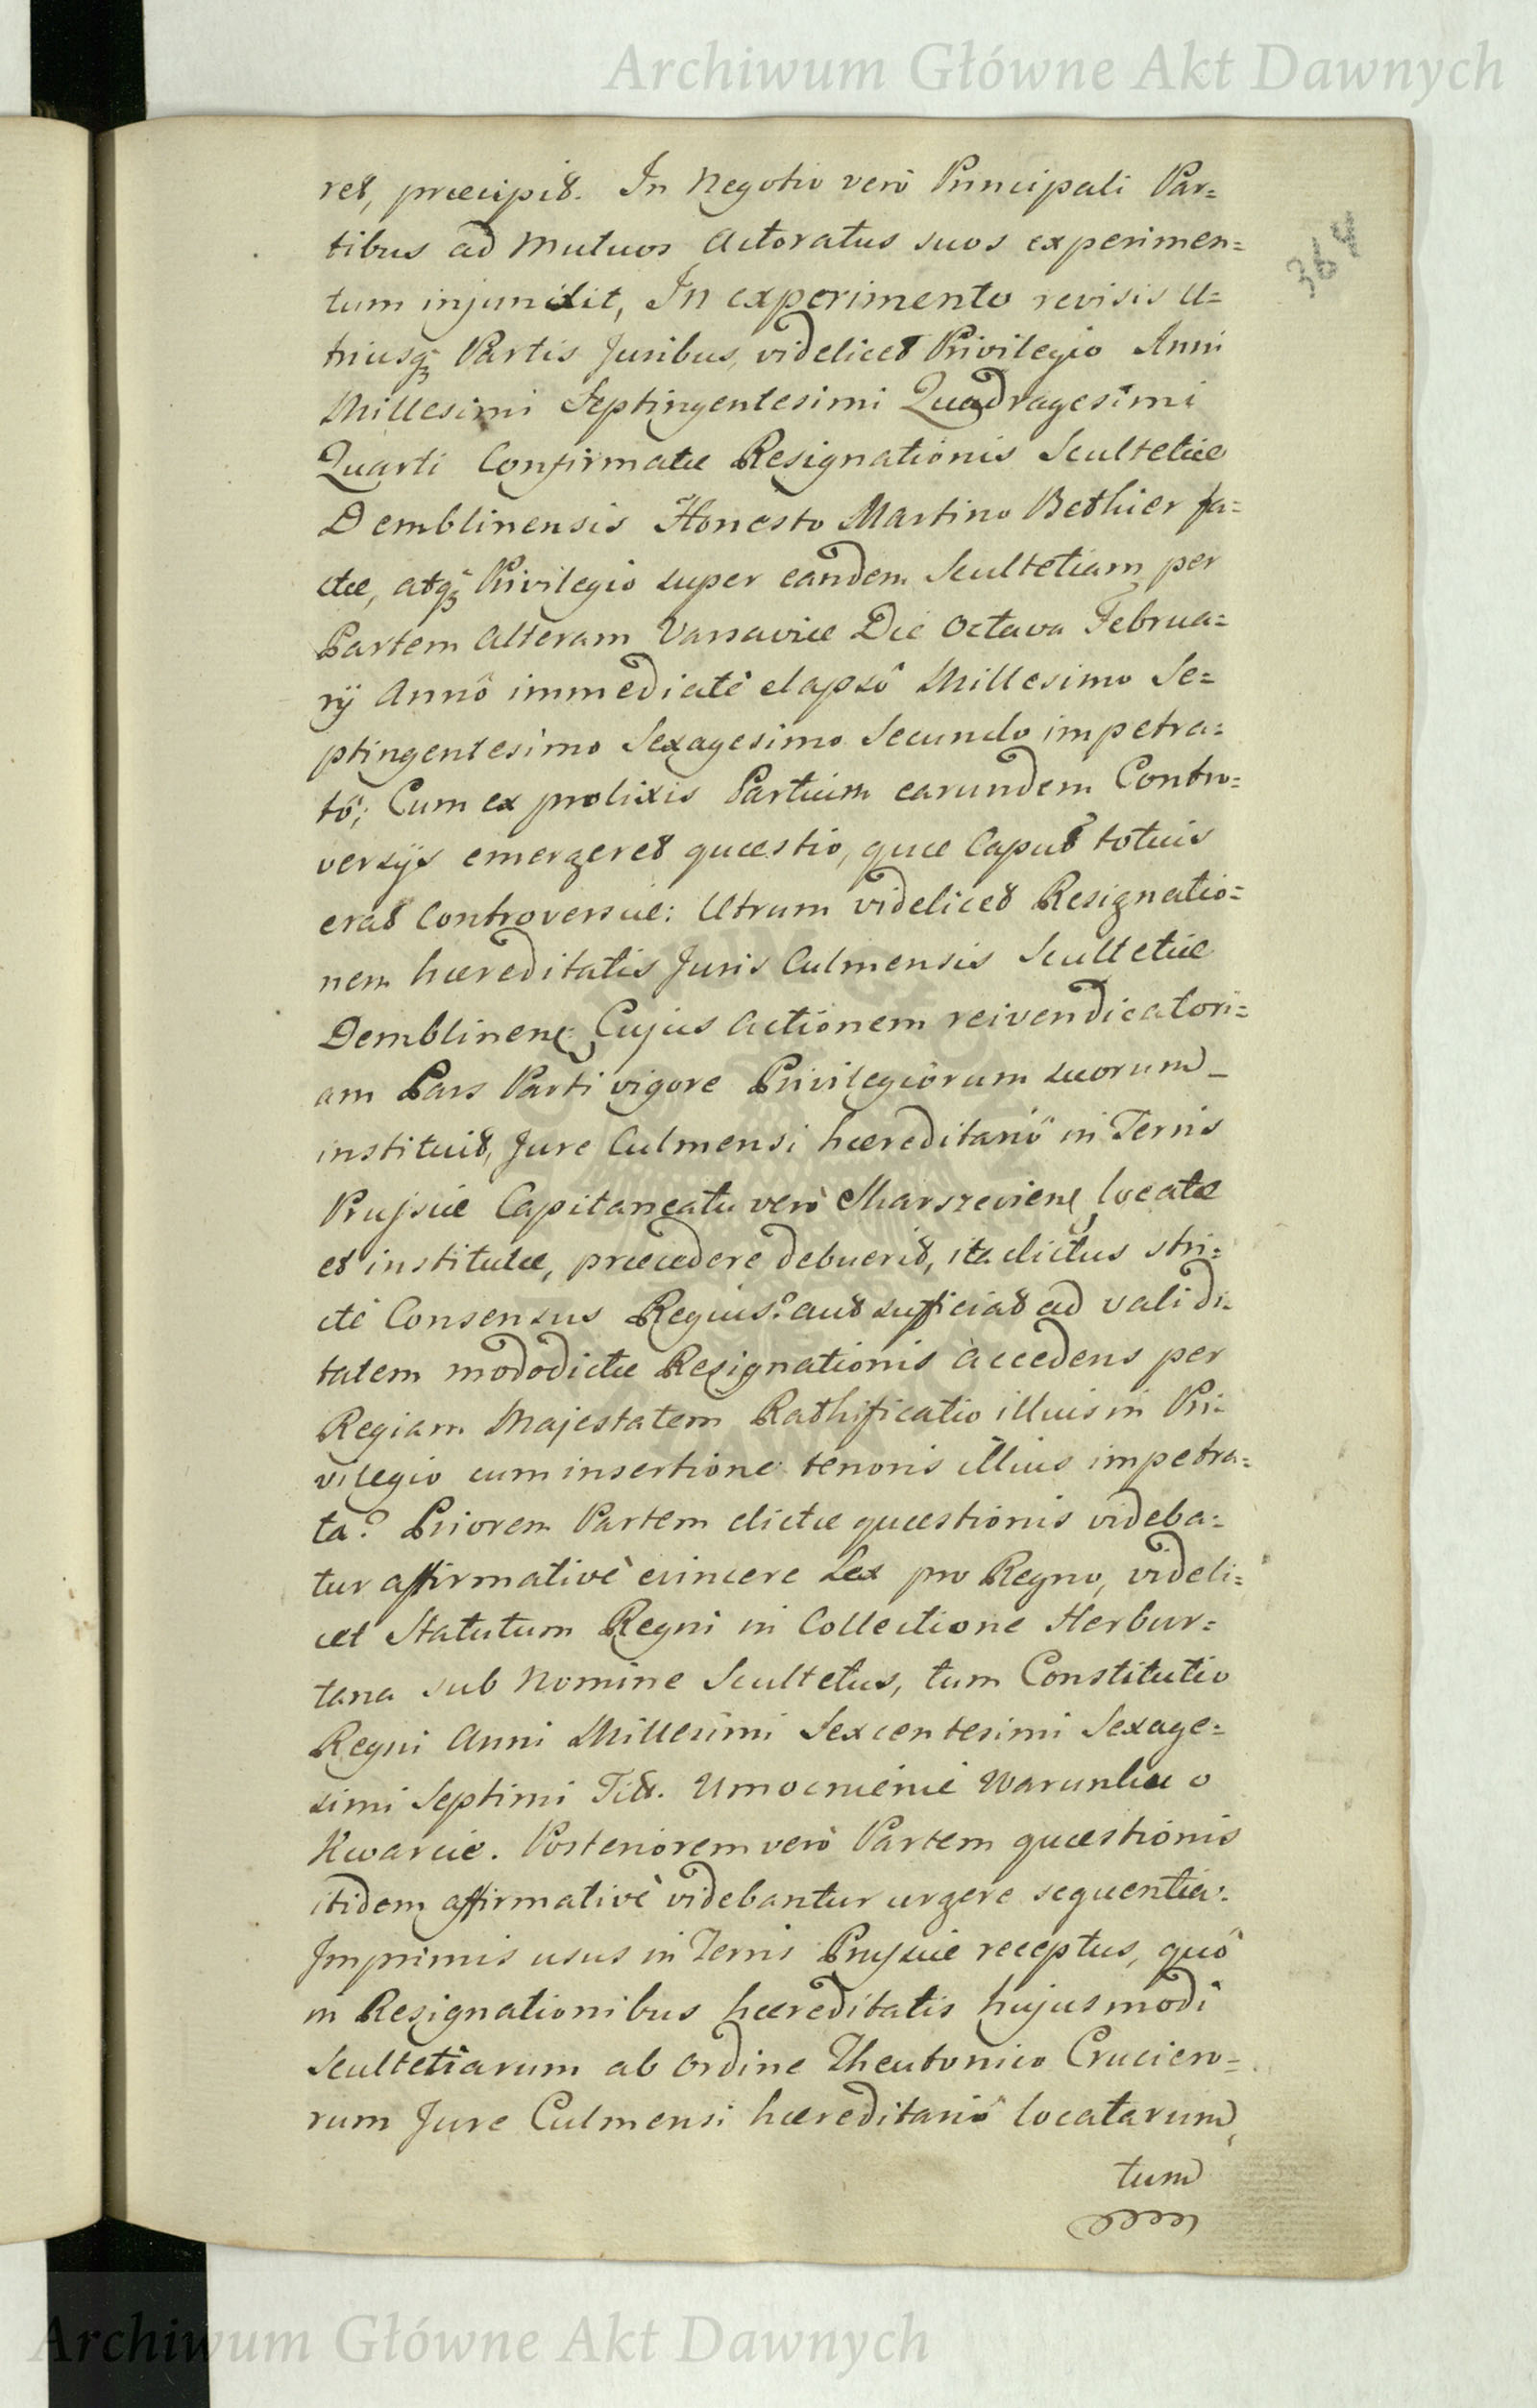 Archiwum Główne Akt Dawnych
364
ret, præcipit. In Negotio verò Principali Par=
tibus ad Mutuos Actoratus suos experimen=
tum injunxit, In experimento revisis U=
triusq; Partis Juribus, videlicet Privilegio Anni
Millesimi Septingentesimi Quadragesimi
Quarti Confirmatæ Resignationis Scultetiæ
Demblinensis Honesto Martino Bethier fa=
ctæ, atq; Privilegio super eandem Scultetiam per
Partem Alteram Varsaviæ Die Octava Februa=
rij Annô immediatè elapsô Millesimo Se=
ptingentesimo Sexagesimo Secundo impetra=
tô; Cum ex prolixis Partium earundem Contro=
versijs emergeret quæstio, quæ Caput totius
erat Controversiæ: Utrum videlicet Resignatio=
nem hæreditatis Juris Culmensis Scultetiæ
Demblinen: Cujus Actionem reivendicatori=
am Pars Parti vigore Privilegiorum suorum
instituit, Jure Culmensi hæreditariô in Terris
Prussiæ Capitaneatu verò Skarszevien: locatæ
et institutæ, præcedere debuerit, ita dictus stri=
ctè Consensus Regius? aut sufficiat ad validi=
tatem mododictæ Resignationis accedens per
Regiam Majestatem Rathificatio illius in Pri=
vilegio cum insertione tenoris illius impetra=
ta? Priorem Partem dictæ quæstionis videba=
tur affirmativè evincere Lex pro Regno, videli=
cet Statutum Regni in Collectione Herbur=
tana sub Nomine Scultetus, tum Constitutio
Regni Anni Millesimi Sexcentesimi Sexage=
simi Septimi Tit. Umocnienie Warunku o
Kwarcie. Posteriorem verò Partem quæstionis
itidem affirmativè videbantur urgere sequentia:
Imprimis usus in Terris Prussiæ receptus, quô
in Resignationibus hæreditatis hujusmodi
Scultetiarum ab Ordine Theutonico Crucifero=
rum Jure Culmensi hæreditariô locatarum,
tum
Archiwum Główne Akt Dawnych